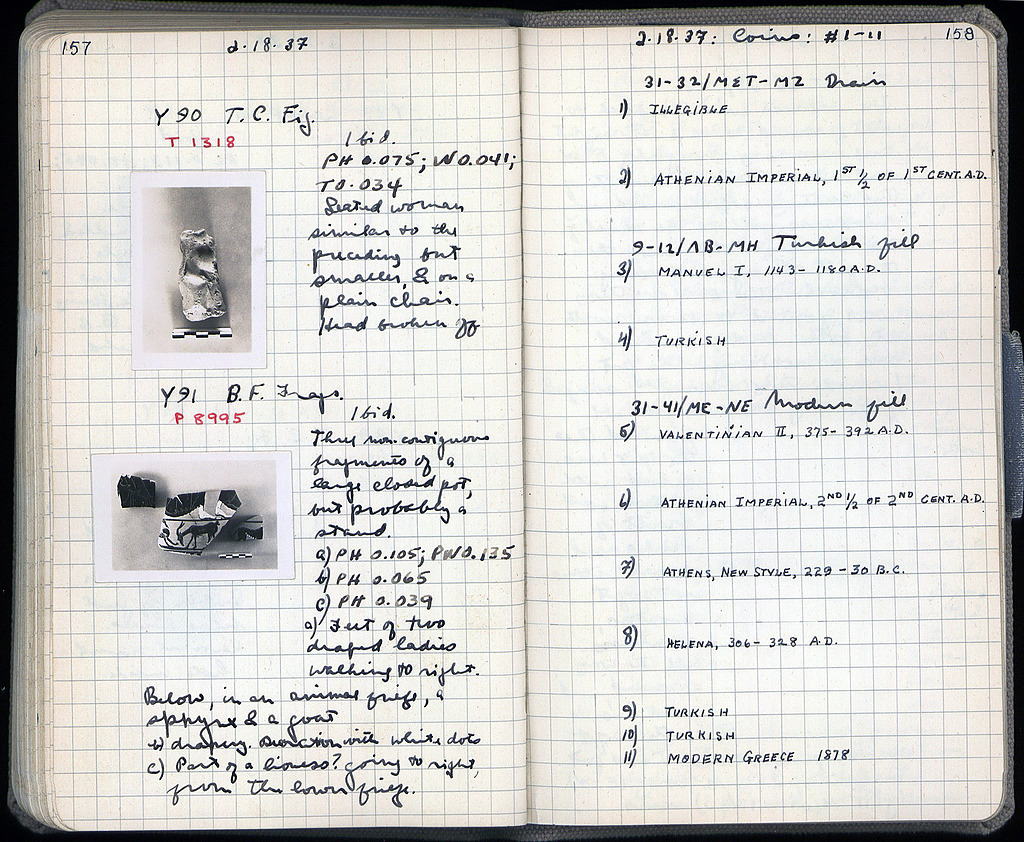 157
2·18·37
Y 90 T.C. Fig.
T 1318
Ibid.
PH 0.075; W 0.041;
T 0.034
Seated woman
similar to the
preceding but
smaller, & on a
plain chair.
Head broken off
Y 91 B.F. Frags.
P 8995
Ibid.
Three non-contiguous
fragments of a
large closed pot,
but probably a
stand.
a) PH 0.105; PW 0.135
b) PH 0.065
c) PH 0.039
a) Feet of two
draped ladies
walking to right.
Below, in an animal frieze, a
sphynx & a goat
b) drapery. Decoration with white dots
c) Part of a lioness? going to right,
from the lower frieze.
2·18·37: Coins: #1-11
158
31-32/ΜΕΤ-ΜΖ Drain
1) ILLEGIBLE
2) ATHENIAN IMPERIAL, 1ST 1/2 OF 1ST CENT. A.D.
9-12/ΛΒ-ΜΗ Turkish fill
3) MANUEL I, 1143-1180 A.D.
4) TURKISH
31-41/ΜΕ-ΝΕ Modern fill
5) VALENTINIAN II, 375-392 A.D.
6) ATHENIAN IMPERIAL, 2ND 1/2 OF 2ND CENT. A.D.
7) ATHENS, NEW STYLE, 229-30 B.C.
8) HELENA, 306-328 A.D.
9) TURKISH
10) TURKISH
11) MODERN GREECE 1878